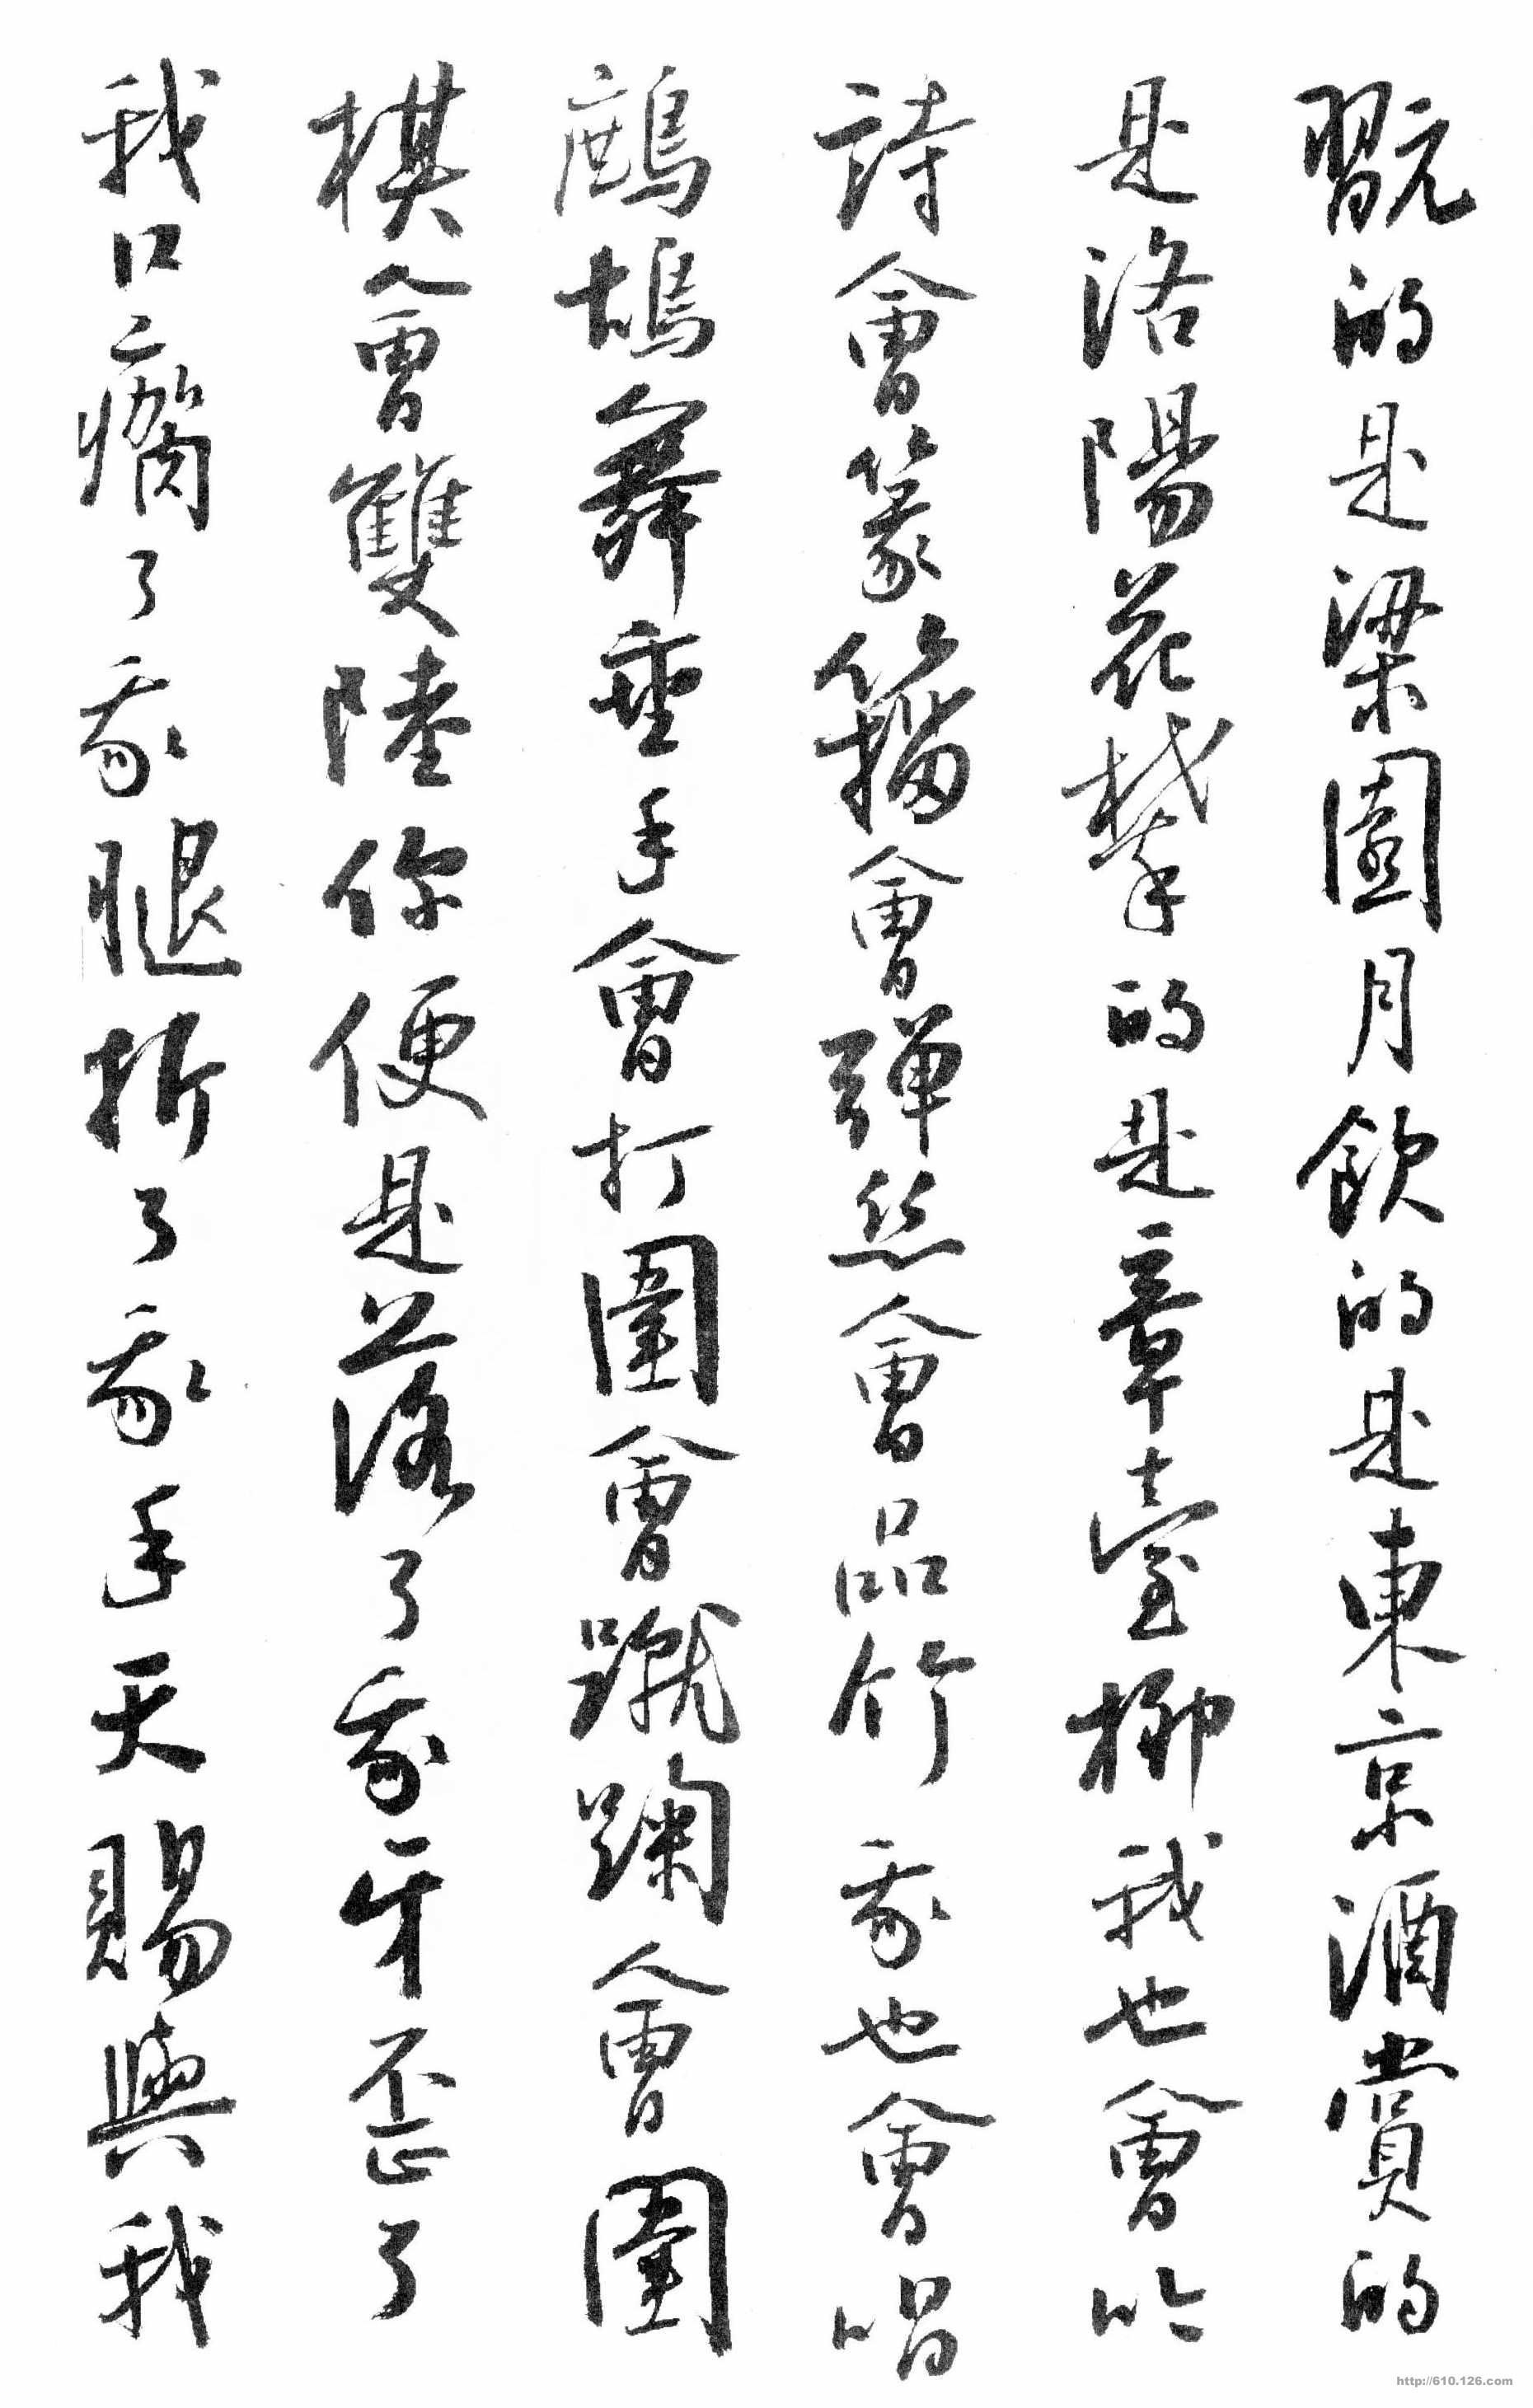 翫的是梁園月飲的是東京酒賞的
是洛陽花攀的是章臺柳我也會吟
詩會篆籀會彈絲會品竹我也會唱
鷓鴣舞垂手會打圍會蹴踘會圍
棋會雙陸你便是落了我牙歪了
我口瘸了我腿折了我手天賜與我
http://610.126.com